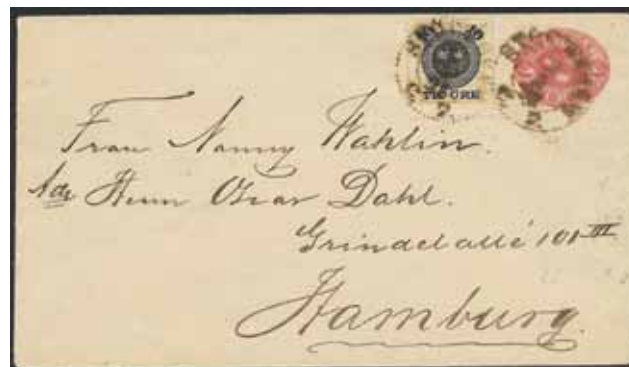 10
TIO ÖRE
Frau Nanny Wahlin.
Adr Herrn Oscar Dahl.
Grindelallé 101 III
Hamburg.